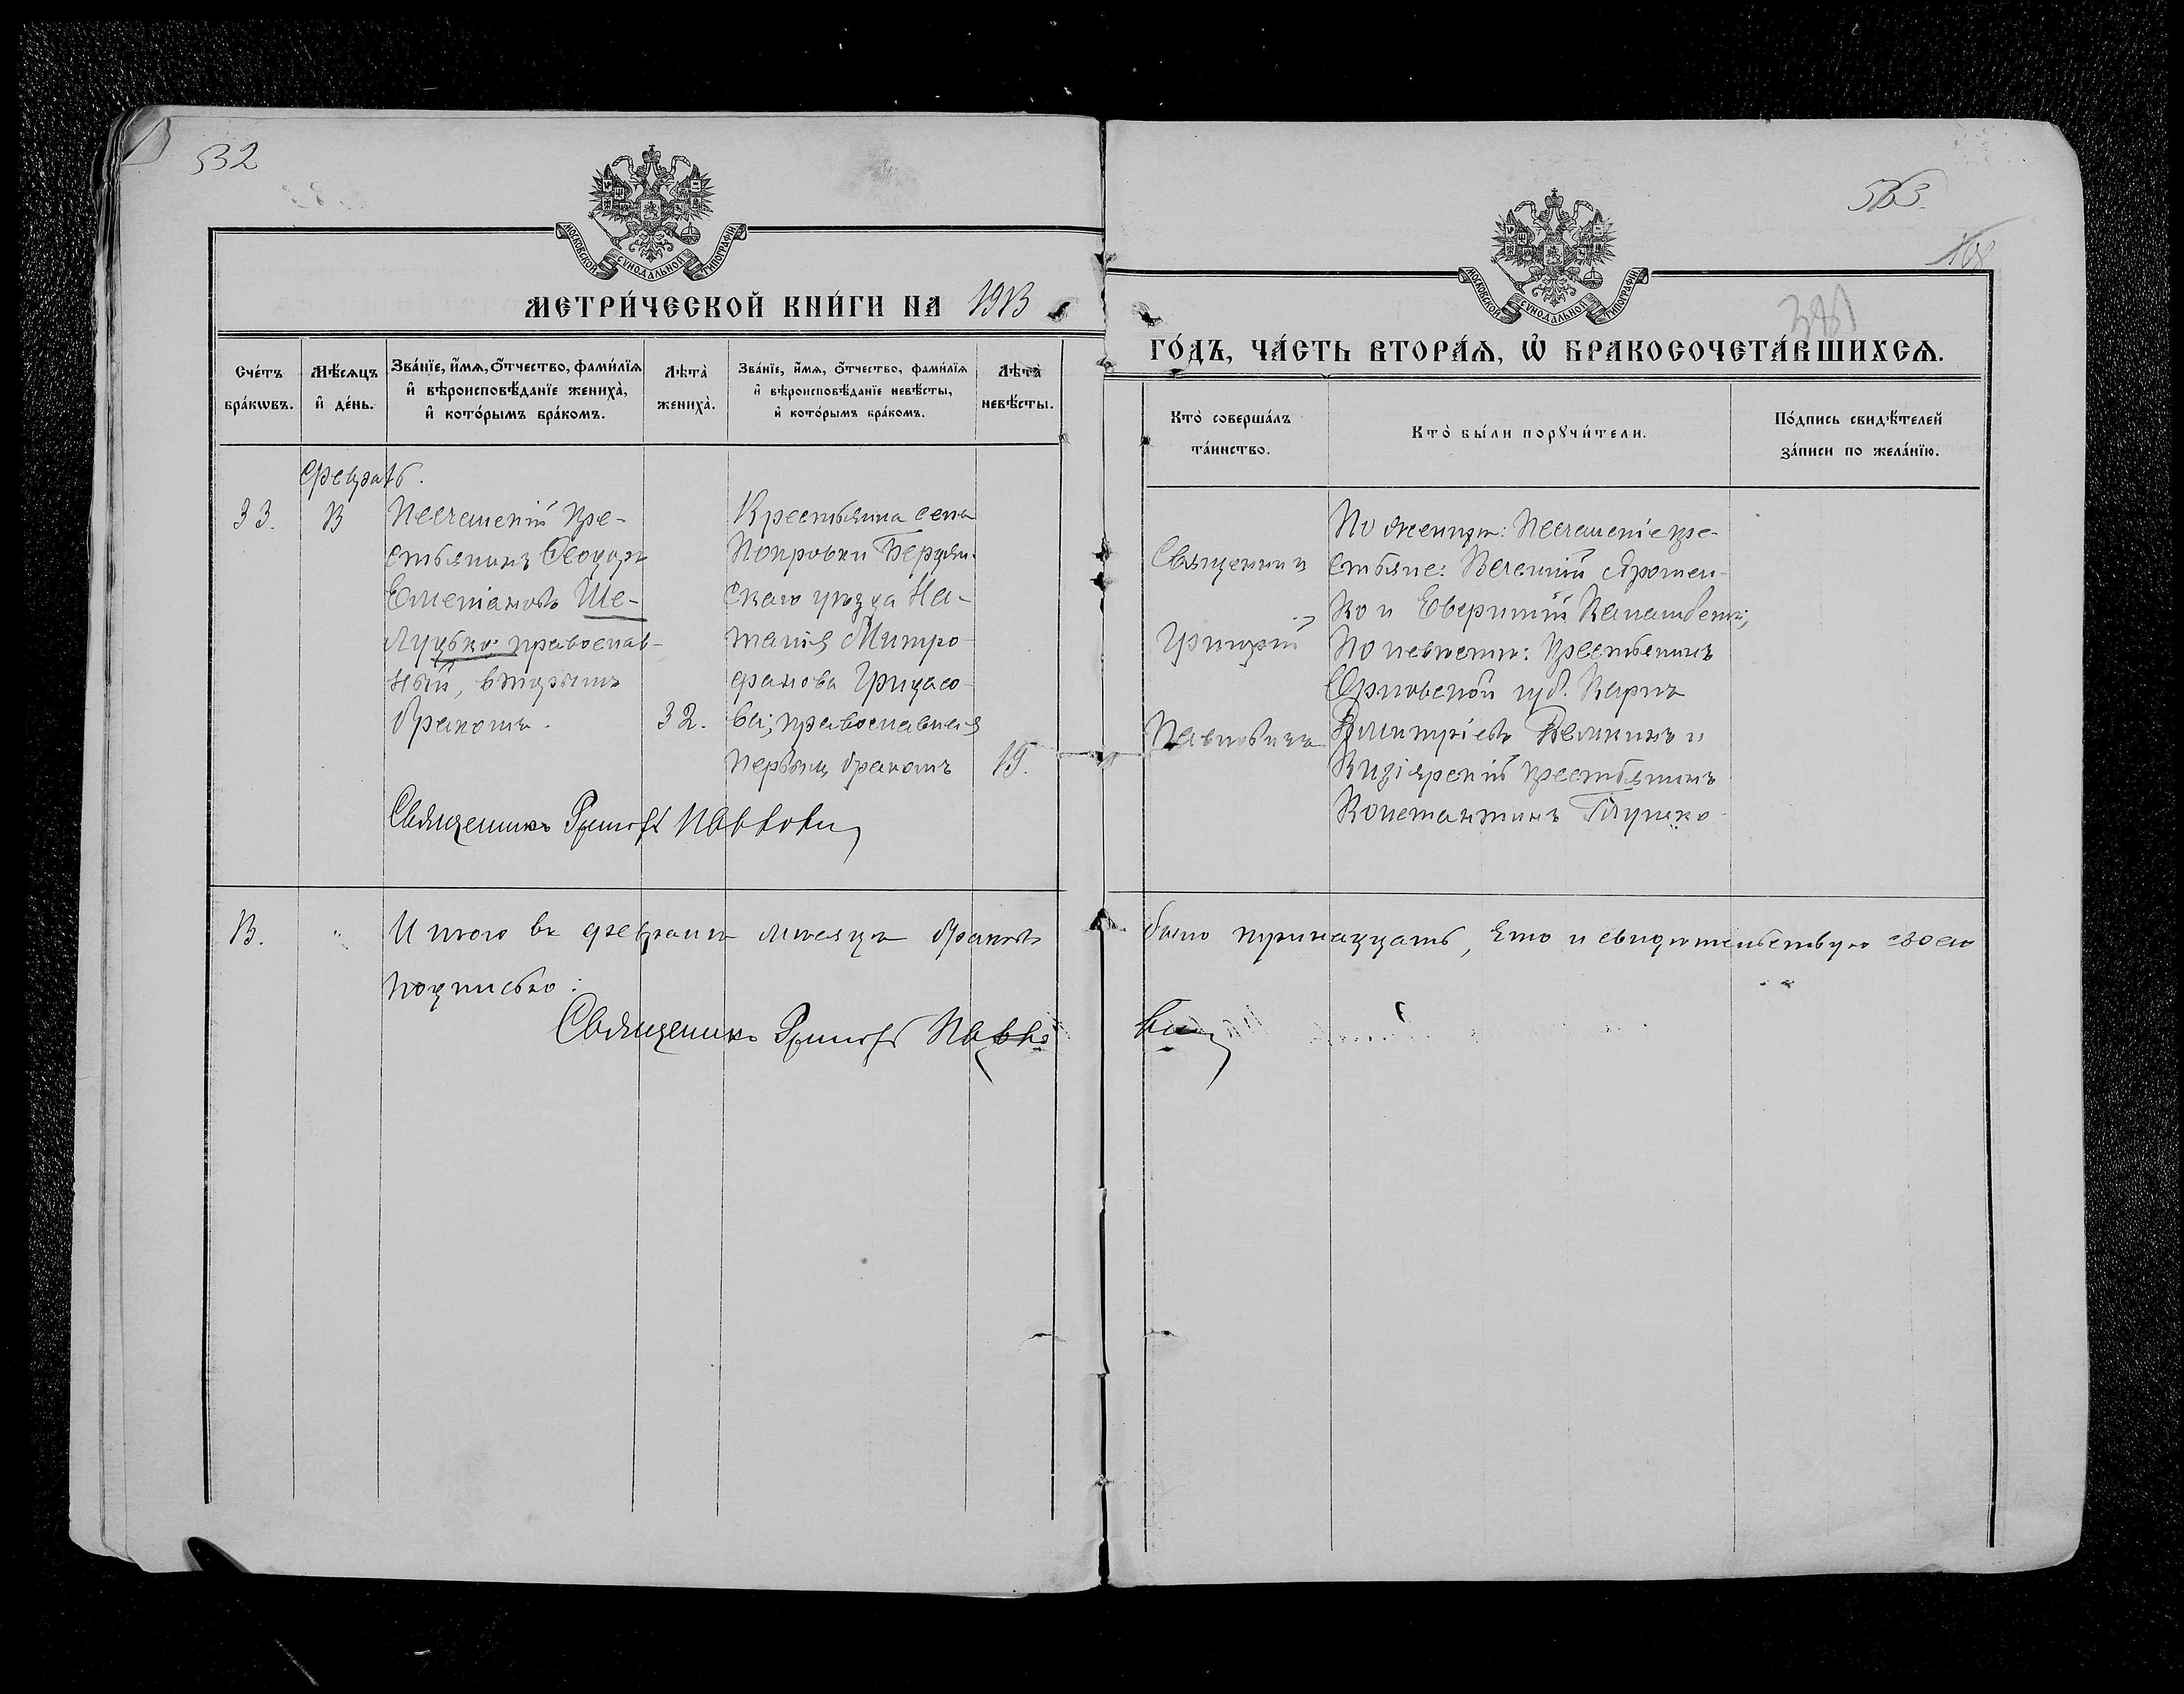 532
МОСКОВСКОЙ СѴНОДАЛЬНОЙ ТИПОГРАФІИ
МЕТРИ́ЧЕСКОЙ КНИ́ГИ НА 1913
Сче́тъ бра́кѡвъ.
Мѣ́сѧцъ и҆ де́нь.
Зва́нїе, и҆́мѧ, ѻ҆́тчество, фами́лїѧ
и҆ вѣроисповѣ́данїе жениха̀,
и҆ кото́рымъ бра́комъ.
Лѣта̀ жениха̀.
Зва́нїе, и҆́мѧ, ѻ҆́тчество, фами́лїѧ
и҆ вѣроисповѣ́данїе невѣ́сты,
и҆ кото́рымъ бра́комъ.
Лѣта̀ невѣ́сты.
33.
13
кре-
стьянинъ Ѳеодоръ
Емеліановъ Ше-
православ-
ный, вторымъ
бракомъ.
32.
Крестьянка села
Покровки Бердян-
скаго уѣзда На-
талія Митро-
фанова
ва, православная
первымъ бракомъ
19.
Священникъ Григорій Павловичъ
13.
Итого въ февралѣ мѣсяцѣ браковъ
подписью:
Священникъ Григорій Павло
МОСКОВСКОЙ СѴНОДАЛЬНОЙ ТИПОГРАФІИ
ГО́ДЪ, ЧА́СТЬ ВТОРА́Ѧ, Ѡ҆ БРАКОСОЧЕТА́ВШИХСѦ.
Кто̀ соверша́лъ
та́инство.
Кто̀ бы́ли порꙋчи́тели.
По́дпись свидѣ́телей
за́писи по жела́нїю.
Священникъ
Григорій
Павловичъ
По женихѣ: кре-
стьяне: Ярошен-
ко и
По невѣстѣ: крестьянинъ
Орловской губ. Карпъ
Димитріевъ и
крестьянинъ
Константинъ
было тринадцать, что и свидѣтельствую своею
вичъ